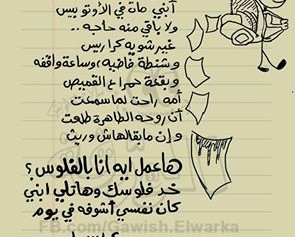 ابني مات في الأوتوبيس
ولا باقي منه حاجه ..
غير شوية كراريس
وشنطة فاضيه، وساعة واقفه
وبقعة حمراء ع القميص
أمه راحت لما سمعت
أن روحه الطاهرة طلعت
و إن مابقالهاش وريث
هاعمل ايه أنا بالفلوس؟
خد فلوسك وهاتلي ابني
كان نفسي أشوفه في يوم
FB.com/Gawish.Elwarka